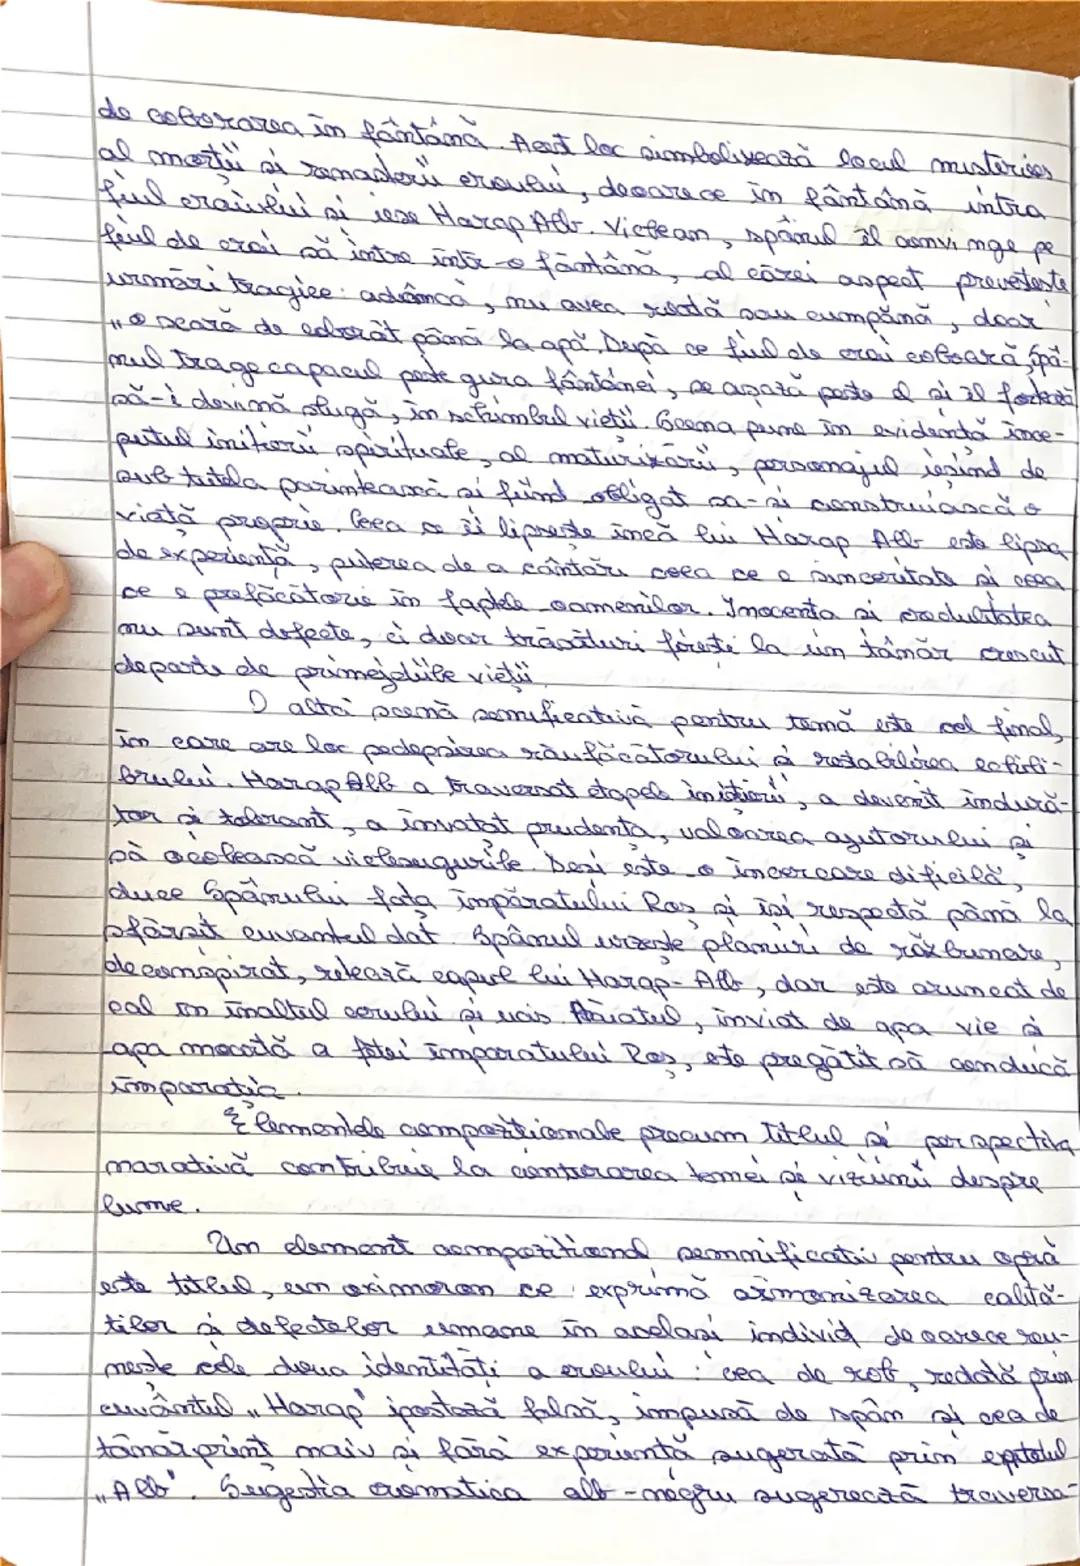 de coborarea în fântână. Acest loc simbolizează locul misterios
al morții și renașterii eroului, deoarece în fântână intra
fiul craiului și iese Harap Alb. Viclean, spânul îl convinge pe
feiul de crai să intre într-o fântână, al cărei aspect prevestește
urmări tragice: adâncă, nu avea roată sau cumpănă, doar
„o scară de coborât până la apă. După ce fiul de crai coboară, spâ-
nul trage capacul peste gura fântânei, se așază peste el și îl forțează
să-i devină slugă, în schimbul vieții. Scena pune în evidență înce-
putul inițierii spirituale, al maturizării, personajul ieșind de
sub tutela parintească și fiind obligat sa-și construiască o
viață proprie. Ceea ce îi lipsește încă lui Harap Alb este lipsa
de experiență, puterea de a cântări ceea ce e sinceritate și ceea
ce e prefăcătorie în faptele oamenilor. Inocența si credulitatea
nu sunt defecte, ci doar trăsături firești la un tânăr crescut
departe de primejdiile vieții.
O altă scenă semnificativă pentru temă este cel final,
în care are loc pedepsirea răufăcătorului și restabilirea echili-
brului. Harap Alb a traversat etapele inițierii, a devenit îndură-
tor și tolerant, a învatat prudența, valoarea ajutorului și
să ocolească vicleșugurile. Desi este o încercare dificilă,
duce Spânului fata împăratului Roș și își respectă până la
sfârsit cuvantul dat. Spânul urzește planuri de răzbunare,
deconspirat, retează capul lui Harap-Alb, dar este aruncat de
cal în înaltul cerului și ucis. Băiatul, inviat de apa vie și
apa moartă a fetei împaratului Roș, este pregătit să conducă
împaratia.
Elementele compoziționale precum titlul și perspectiva
narativă contribuie la conturarea temei și viziunii despre
lume.
Un element compozitional semnificativ pentru operă
este titlul, un oximoron ce exprimă armonizarea calită-
tilor și defectelor umane în acelasi individ deoarece reu-
nește cele doua identități a eroului: cea de rob, redată prin
cuvântul „Harap" ipostază falsă, impusă de spân și cea de
tânăr prinț naiv și fără experiență sugerată prin epitetul
„Alb". Sugestia cromatica alb-negru sugerează traversa-